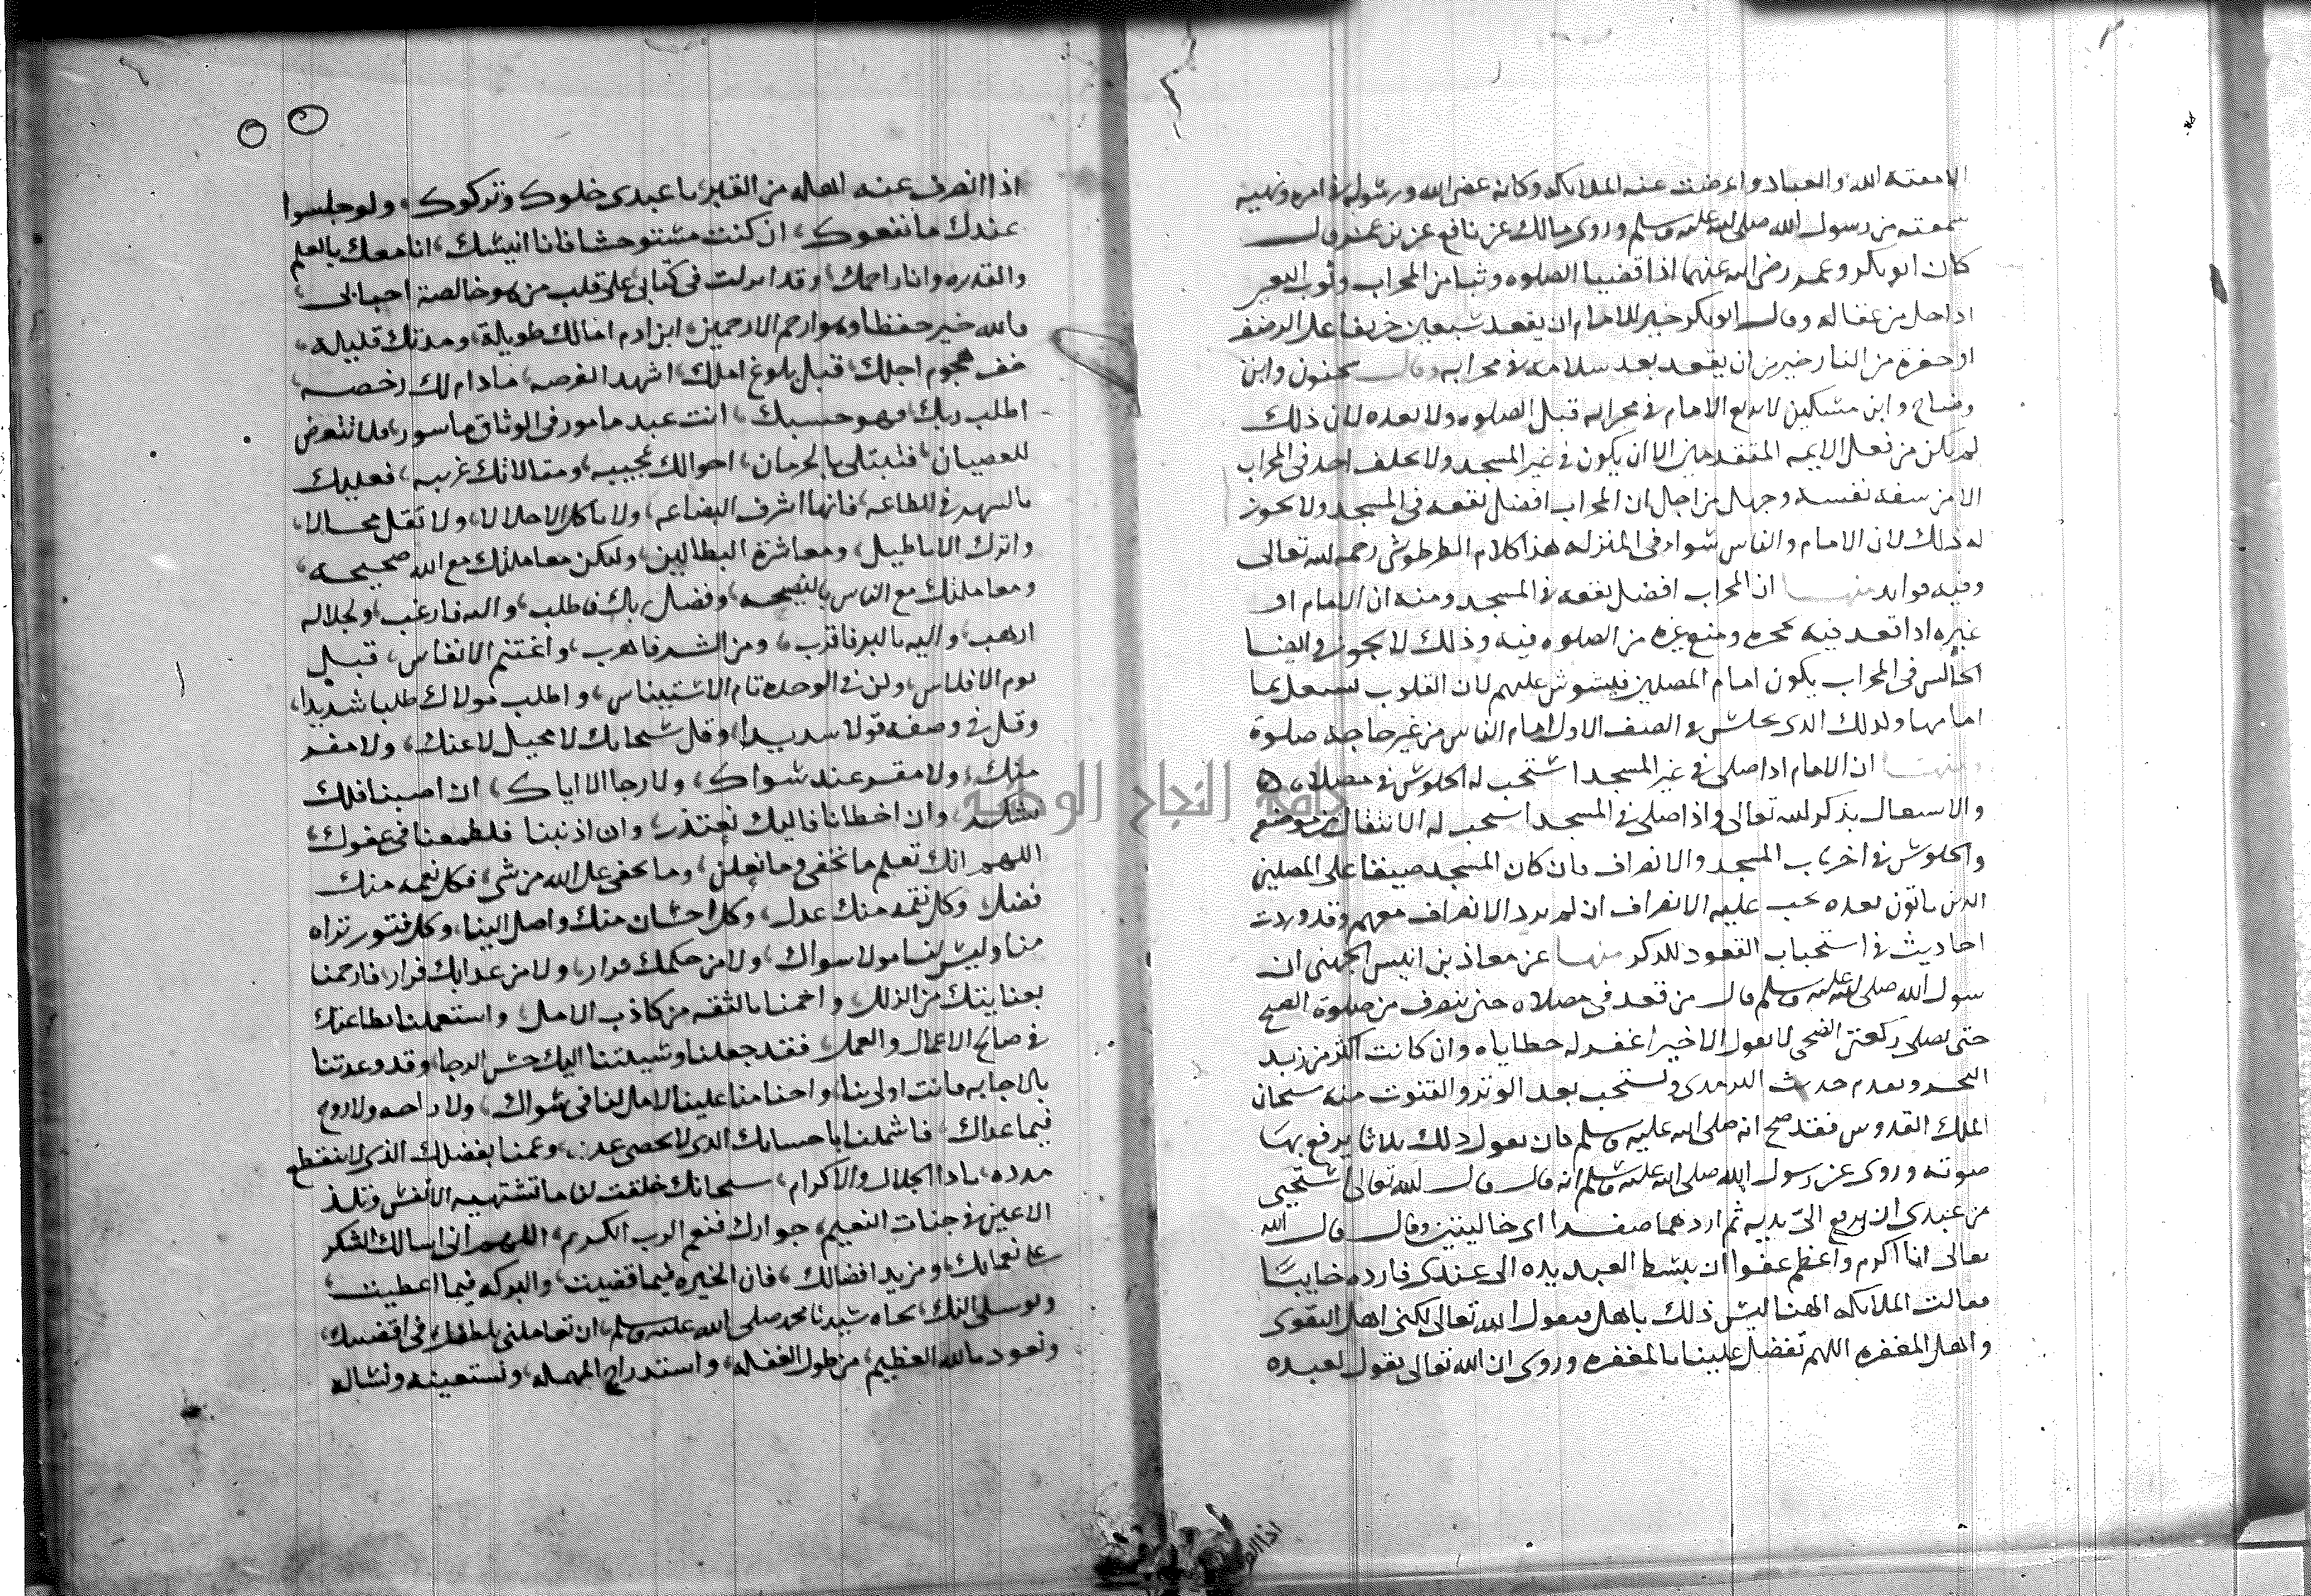 الا مقته الله والعباد واعرضت عنه الملايكه وكانه عصى الله ورسوله في امره ونهيه
سمعته من رسول الله صلى الله عليه وسلم وروى مالك عن نافع عن بن عمر قال
كان ابو بكر وعمر رضي الله عنهما اذا قضيا الصلوه وثبا من المحراب وثوب البعير
اذا حل من عقاله وقال ابو بكر خير للامام ان يقعد سبعين خريفا على الرضف
او حفرة من النار خير من ان يقعد بعد سلامه في محرابه وقال سحنون وابن
وضاح وابن مسكين لا يدع الامام في محرابه قبل الصلوه ولا بعده لان ذلك
لم يكن من فعل الايمه المتقدمين الا ان يكون في غير المسجد ولا يخلف احد في المحراب
الا من سفه نفسه وجهل من اجل ان المحراب افضل بقعه في المسجد ولا يجوز
له ذلك لان الامام والناس سواء في المنزله هذا كلام الطرطوشي رحمه الله تعالى
وفيه فوايد منها ان المحراب افضل بقعه في المسجد ومنه ان الامام او
غيره اذا قعد فيه ومنع غيره من الصلوه فيه وذلك لا يجوز وايضا
الجالس في المحراب يكون امام المصلين فيشوش عليهم لان القلوب تشتغل بما
امامها ولذلك الذي يجلس في الصف الاول امام الناس من غير حاجه صلوة
ومنها ان الامام اذا صلى في غير المسجد استحب له الجلوس في مصلاه
والاشتغال بذكر الله تعالى واذا صلى في المسجد استحب له الانتقال من موضعه
والجلوس في اخريات المسجد والانصراف فان كان المسجد ضيقا على المصلين
الذين ياتون بعده يجب عليه الانصراف ان لم يرد الانصراف معهم وقد وردت
احاديث في استحباب القعود للذكر منها عن معاذ بن انيس الجهني ان
رسول الله صلى الله عليه وسلم قال من قعد في مصلاه حتى ينصرف من صلوة الصبح
حتى يصلي ركعتي الضحى لا يقول الا خيرا غفر له خطاياه وان كانت اكثر من زبد
البحر وتقدم حديث الترمذي ويستحب بعد الوتر والقنوت منه سبحان
الملك القدوس فقد صح انه صلى الله عليه وسلم كان يقول ذلك ثلاثا يرفع بها
صوته وروى عن رسول الله صلى الله عليه وسلم انه قال قال الله تعالى استحيي
من عبدي ان يرفع الي يديه ثم اردهما صفرا اي خاليتين وقال قال الله
تعالى انا اكرم واعظم عفوا ان يبسط العبد يده الى عندي فارده خايبا
فقالت الملايكه الهنا ليس ذلك باهل فيقول الله تعالى لكني اهل التقوى
واهل المغفره اللهم تفضل علينا بالمغفره وروى ان الله تعالى يقول لعبده
اذا انصرف عنه اهله من القبر يا عبدي خلوك وتركوك ولو جلسوا
عندك ما نفعوك ان كنت مستوحشا فانا انيسك انا معك بالعلم
والقدره وانا راحمك وقد انزلت في كتابي على قلب من هو خالصة احبابي
فالله خير حفظا وهو ارحم الراحمين ابن ادم امالك طويلة ومدتك قليله
خف هجوم اجلك قبل بلوغ املك اشهد الفرصه ما دام لك رخصه
اطلب ربك فهو حسبك انت عبد مامور في الوثاق ماسور فلا تتعرض
للعصيان فتبتلى بالحرمان احوالك عجيبه ومقالاتك غريبه فعليك
بالسهر في الطاعه فانها اشرف البضاعه ولا تاكل الا حلالا ولا تقل محالا
واترك الاباطيل ومعاشرة البطالين ولتكن معاملتك مع الله صحيحه
ومعاملتك مع الناس بالنصيحه وفضل ربك فاطلب واليه فارغب ولجلاله
ارهب واليه بالبر فاقترب ومن الشر فاهرب واغتنم الانفاس قبل
يوم الافلاس وكن في الوحده تام الاستيناس واطلب مولاك طلبا شديدا
وقل في وصفه قولا سديدا وقل سبحانك لا محيل لا عنك ولا مفر
منك ولا مقر عند سواك ولا رجا الا اياك ان اصبنا فلك
نشكر وان اخطانا فاليك نعتذر وان اذنبنا فلطمعنا في عفوك
اللهم انك تعلم ما نخفي وما نعلن وما يخفى على الله من شي فكل نعمه منك
فضل وكل نقمه منك عدل وكل احسان منك واصل الينا وكل فتور تراه
منا وليس لنا مولا سواك ولا من حكمك فرار ولا من عذابك فرار فارحمنا
بعنايتك من الزلل واحمنا بالثقه من كاذب الامل واستعملنا بطاعتك
في صالح الاعمال والعمل فقد جعلنا وسيلتنا اليك حسن الرجا وقد وعدتنا
بالاجابه فانت اولى بنا لنا في سواك ولا راحه ولا روح
فيما عداك فاشملنا باحسانك الذي لا يحصى عدده وعمنا بفضلك الذي لا ينقطع
مدده يا ذا الجلال والاكرام سبحانك خلقت لنا ما تشتهيه الانفس وتلذ
الاعين في جنات النعيم جوارك فنعم الرب الكريم اللهم اني اسالك الشكر
على نعمايك ومزيد افضالك فان الخيره فيما قضيت والبركه فيما اعطيت
وتوسلي اليك بجاه سيدنا محمد صلى الله عليه وسلم ان تعاملني بلطفك في اقضيتك
ونعوذ بالله العظيم من طول الغفله واستدراج المهله ونستعينه ونساله
جامعة النجاح الوطنية